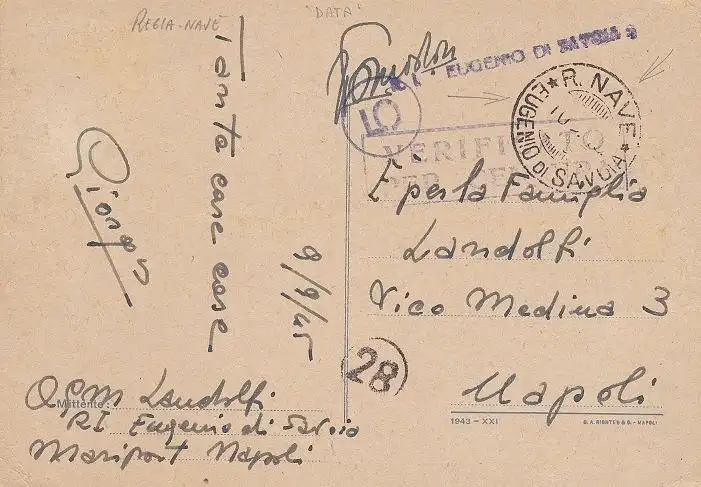 REGIA-NAVE
"DATA"
Tante care cose
Giorgio
9/9/45
EUGENIO DI SAVOIA
R. NAVE
EUGENIO DI SAVOIA
10
VERIFICATO
PER CENSURA
È per la Famiglia
Landolfi
Vico Medina 3
Napoli
28
Mittente:
Landolfi
RI Eugenio di Savoia
Mariport Napoli
1943 - XXI
G. A. RICHTER & C. - NAPOLI